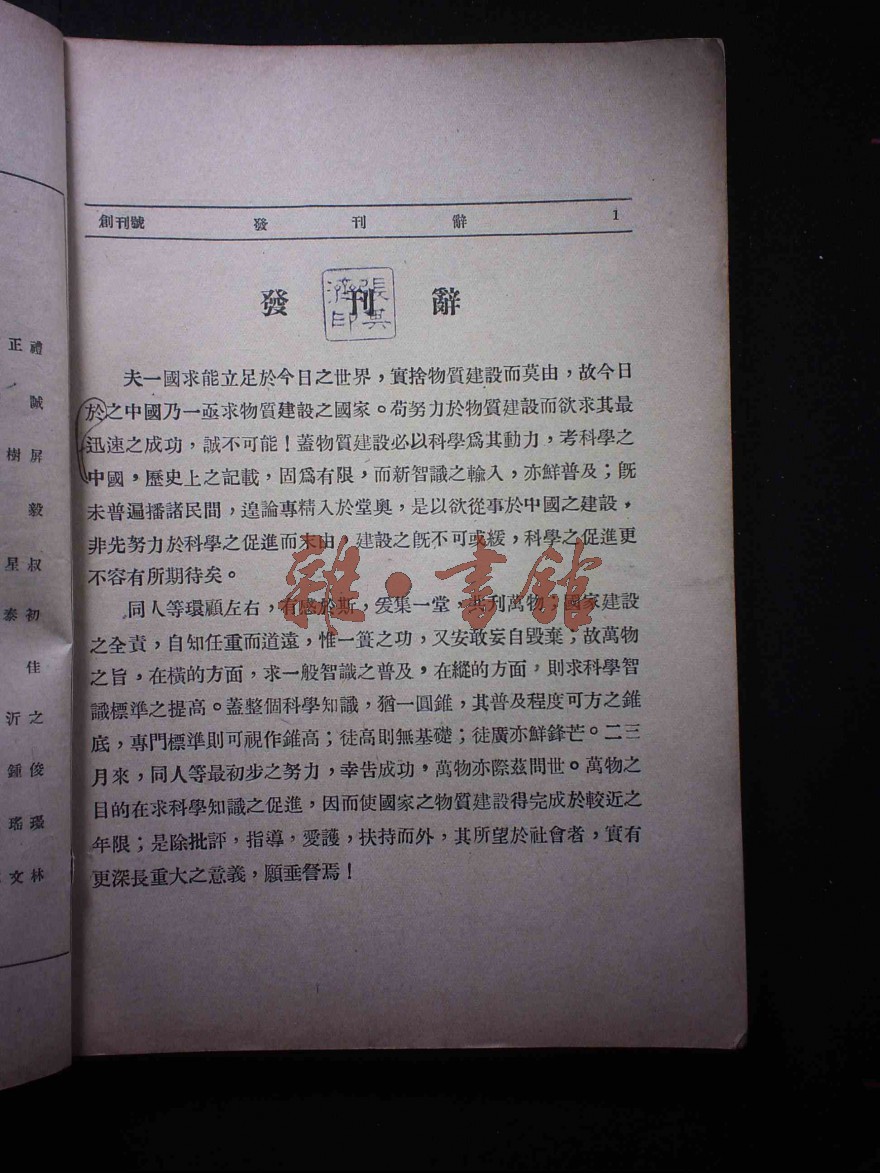 創刊號 發 刊 辭 1
發 刊 辭
張其
濟印
夫一國求能立足於今日之世界，實捨物質建設而莫由，故今日
於之中國乃一亟求物質建設之國家。茍努力於物質建設而欲求其最
迅速之成功，誠不可能！蓋物質建設必以科學爲其動力，考科學之
中國，歷史上之記載，固爲有限，而新智識之輸入，亦鮮普及；旣
未普遍播諸民間，遑論專精入於堂奧，是以欲從事於中國之建設，
非先努力於科學之促進而末由，建設之旣不可或緩，科學之促進更
不容有所期待矣。
同人等環顧左右，有感於斯，爰集一堂，共刊萬物；國家建設
之全責，自知任重而道遠，惟一簣之功，又安敢妄自毀棄；故萬物
之旨，在橫的方面，求一般智識之普及，在縱的方面，則求科學智
識標準之提高。蓋整個科學知識，猶一圓錐，其普及程度可方之錐
底，專門標準則可視作錐高；徒高則無基礎；徒廣亦鮮鋒芒。二三
月來，同人等最初步之努力，幸告成功，萬物亦際茲問世。萬物之
目的在求科學知識之促進，因而使國家之物質建設得完成於較近之
年限；是除批評，指導，愛護，扶持而外，其所望於社會者，實有
更深長重大之意義，願垂詧焉！
雜·書館
正 禮
誠
樹 屏
毅
星 叔
泰 初
佳
沂 之
鍾 俊
瑤 璂
文 林